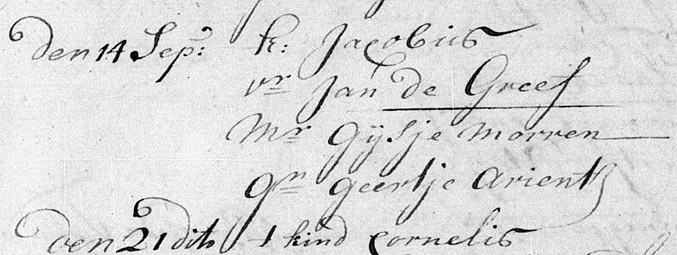 den 14 Sep: k: Jacobus
vr Jan de Greef
Mr Gijsje Morren
gn geertje Arients
den 21 dito 1 kind Cornelis